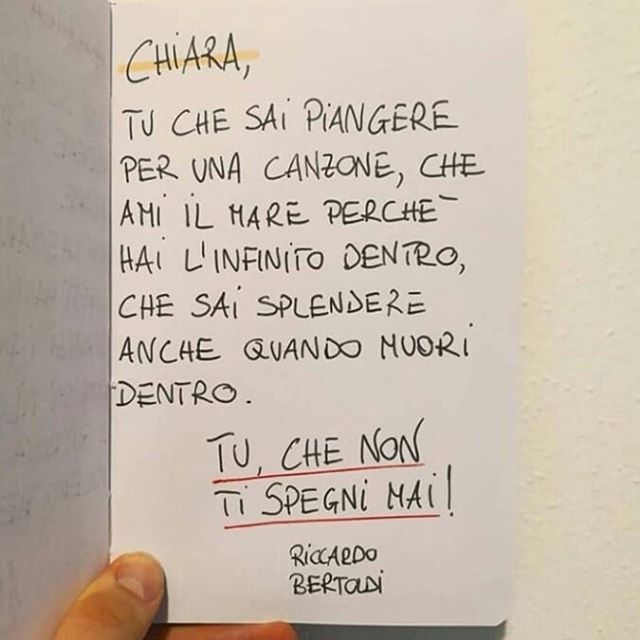 CHiARA,
TU CHE SAi PiANGERE
PER UNA CANZONE, CHE
AMi iL MARE PERCHÉ
HAi L'INFINITO DENTRO,
CHE SAi SPLENDERE
ANCHE QUANDO MUORi
DENTRO.
TU, CHE NON
Ti SPEGNi MAi!
RiCCARDO
BERTOLDi